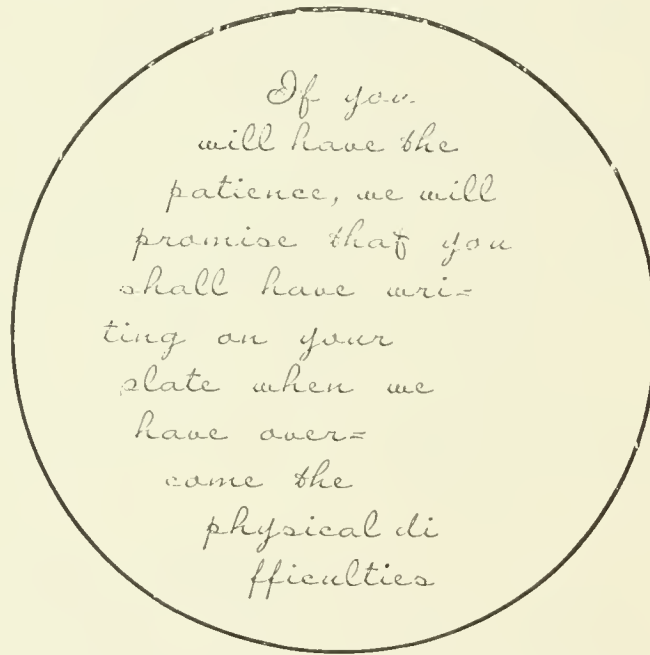 If you
will have the
patience, we will
promise that you
shall have wri=
ting on your
plate when we
have over=
come the
physical di
fficulties